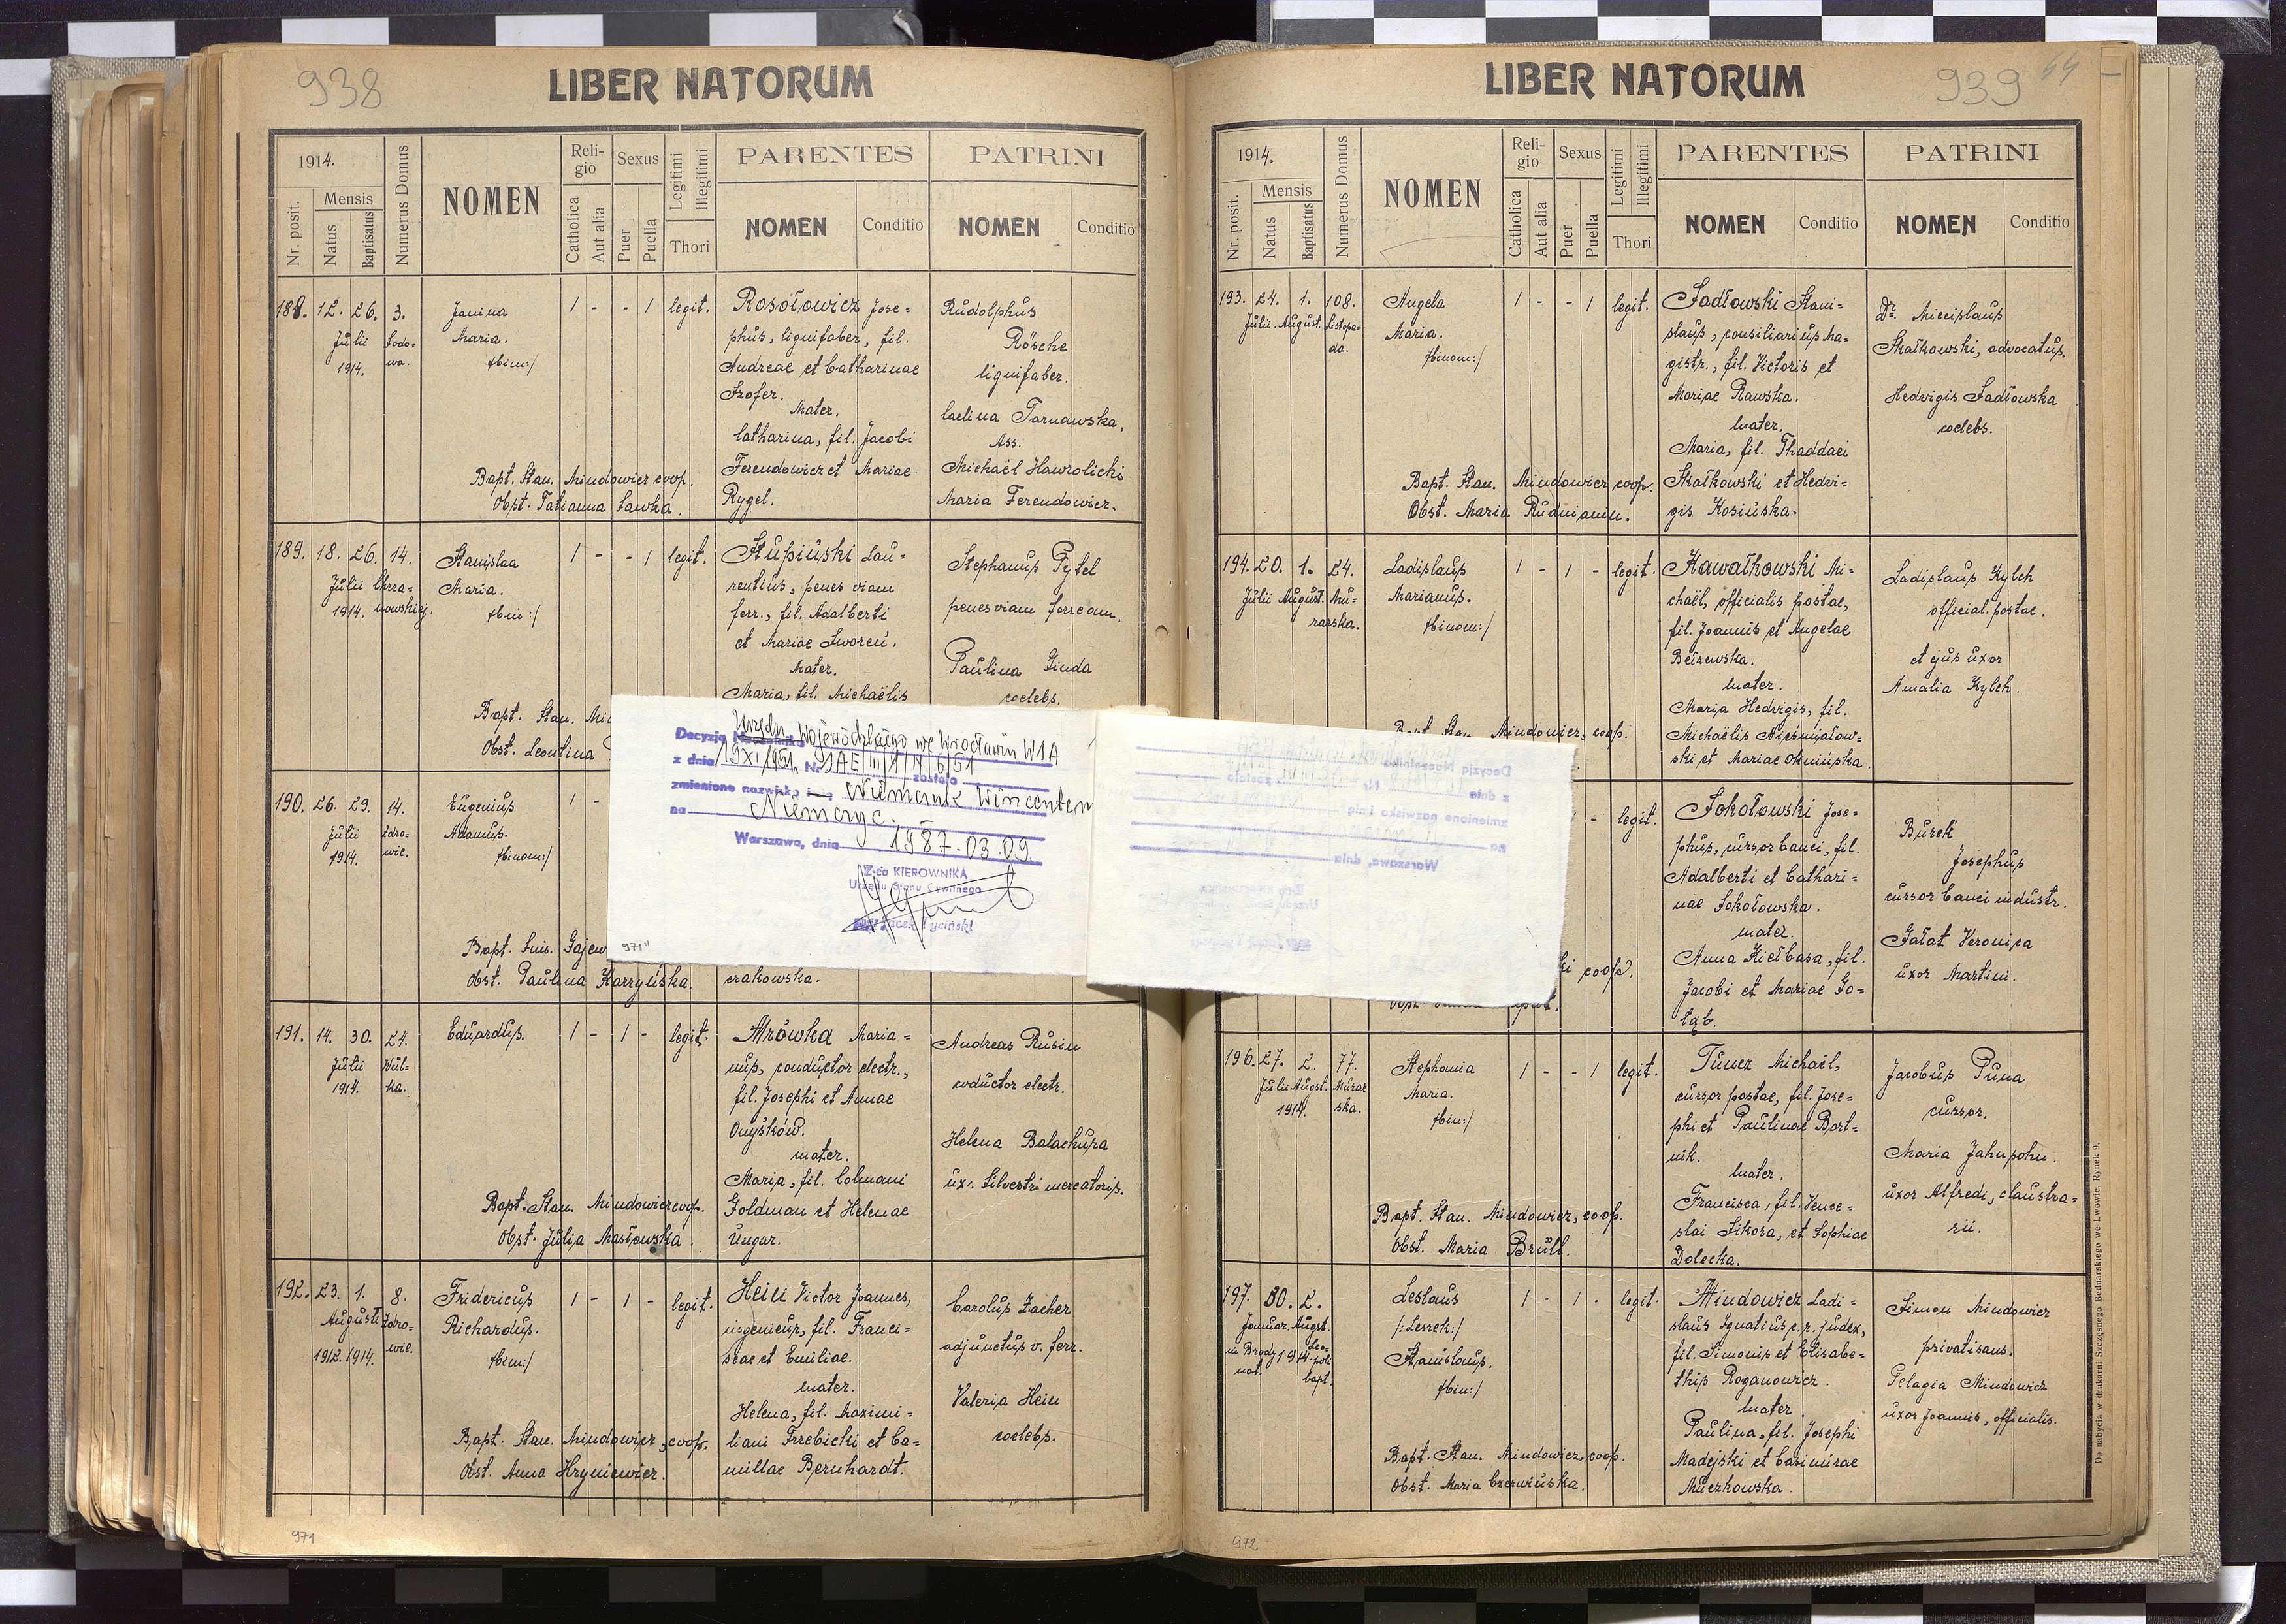 938
LIBER NATORUM
1914.
Nr. posit.
Mensis
Natus
Baptisatus
Numerus Domus
NOMEN
Religio
Catholica
Aut alia
Sexus
Puer
Puella
Legitimi
Illegitimi
Thori
PARENTES
NOMEN
Conditio
PATRINI
NOMEN
Conditio
188. 12. 26. 3.
Julii
1914.
Janina
Maria.
/:bin:/
1 - - 1 legit.
Rosołowicz Jose=
phus, lignifaber, fil.
Andreae et Catharinae
Mater.
Catharina, fil. Jacobi
Ferendowicz et Mariae
Rygel.
Rudolphus
Rösche
lignifaber.
Tarnawska,
Ass.
Michaël Hawrolicki
Maria Ferendowicz.
Bapt. Stan. Mindowicz coop.
Obst. Tatianna Sawka.
189. 18. 26. 14.
Julii
1914.
Stanislaa
Maria.
/:bin:/
1 - - 1 legit.
Słupiński Lau=
rentius, penes viam
ferr., fil. Adalberti
et Mariae Sworeń.
Mater.
Maria, fil. Michaëlis
Stephanus Pytel
penes viam ferream.
Paulina
coelebs.
Bapt. Stan.
Obst. Leontina
190. 26. 29. 14.
Julii
1914.
Zdro=
wie.
Eugenius
Adamus.
/:binom:/
1 -
Bapt.
Obst. Paulina Karzyńska.
czakowska.
Decyzją Naczelnika Urzędu Wojewódzkiego we Wrocławiu W1A
z dnia 19 XI 1951 Nr
zostało
zmienione nazwisko i Wincentem
na Niemczyc.
Warszawa, dnia 1987.03.09.
Z-ca KIEROWNIKA
Urzędu Stanu Cywilnego
971"
191. 14. 30. 24.
Julii
1914.
Wul=
ka.
Eduardus.
1 - 1 - legit.
Mrówka Maria=
nus, conductor electr.,
fil. Josephi et Annae
Onyśków.
mater.
Maria, fil. Colmani
Goldman et Helenae
Ungar.
Andreas Rusin
coductor electr.
Helena Balachura
ux. Silvestri mercatoris.
Bapt. Stan. Mindowicz coop.
Obst. Julia Masłowska.
192. 23. 1. 8.
Augusti
1912. 1914.
Zdro=
wie.
Fridericus
Richardus.
/:bin:/
1 - 1 - legit.
Hein Victor Joannes,
ingenieur, fil. Franci=
scae et Emiliae.
mater.
Helena, fil. Maximi=
liani Trzebicki et Ca=
millae Bernhardt.
Carolus Zacher
adjunctus v. ferr.
Valeria Hein
coelebs.
Bapt. Stan. Mindowicz, coop.
Obst. Anna Hryniewicz.
971
LIBER NATORUM
939
1914.
Nr. posit.
Mensis
Natus
Baptisatus
Numerus Domus
NOMEN
Religio
Catholica
Aut alia
Sexus
Puer
Puella
Legitimi
Illegitimi
Thori
PARENTES
NOMEN
Conditio
PATRINI
NOMEN
Conditio
193. 24. 1. 108.
Julii. August. Listopa=
da.
Angela
Maria.
/:binom:/
1 - - 1 legit.
Sadłowski Stani=
slaus, consiliarius ma=
gistr., fil. Victoris et
Mariae Rawska.
mater.
Maria, fil. Thaddaei
Skałkowski et Hedvi=
gis Kosińska.
Dr. Miecislaus
Skałkowski, advocatus.
Hedvigis Sadłowska
coelebs.
Bapt. Stan. Mindowicz coop.
Obst. Maria Rudnianin.
194. 20. 1. 24.
Julii August. Mu=
rarska.
Ladislaus
Marianus.
/:binom:/
1 - 1 - legit.
Kawałkowski Mi=
chaël, officialis postae,
fil. Joannis et Angelae
Mater.
Maria Hedvigis, fil.
Michaëlis
ski et Mariae Oknińska.
Ladislaus Kylch
official. postae.
et ejus uxor
Amalia Kylch.
Mindowicz, coop.
- legit.
Sokołowski Jose=
phus, cursor banci, fil.
Adalberti et Cathari=
nae Sokołowska.
mater.
Anna Kiełbasa, fil.
Jacobi et Mariae Go=
łąb.
Burek
Josephus
cursor banci industr.
Gałat Veronica
uxor Martini.
coop.
196. 27. 2. 77.
Julii August. Murar
1914. ska.
Stephania
Maria.
/:bin:/
1 - - 1 legit.
Tuncz Michaël,
cursor postae, fil. Jose=
phi et Paulinae Bart=
nik.
Mater.
Francisca, fil. Vence=
slai Sikora, et Sophiae
Dolecka.
Jacobus Puna
cursor.
Maria Jahnsohn.
uxor Alfredi, claustra=
rii.
Bapt. Stan. Mindowicz, coop.
Obst. Maria Brüll.
197. 30. 2.
Januar. August.
in Brody 1914
nat.
Leo-
poli
bapt.
Leslaus
/:Leszek:/
Stanislaus.
/:bin:/
1 - 1 - legit.
Mindowicz Ladi=
slaus Ignatius c. r. judex,
fil. Simonis et Elisabe=
this Roganowicz.
Mater
Paulina, fil. Josephi
Madejski et Casimirae
Muczkowska.
Simon Mindowicz
privatisans.
Pelagia Mindowicz
uxor Joannis, officialis.
Bapt. Stan. Mindowicz, coop.
Obst. Maria Czerwińska.
Do nabycia w drukarni Szczęsnego Bednarskiego we Lwowie, Rynek 9.
972